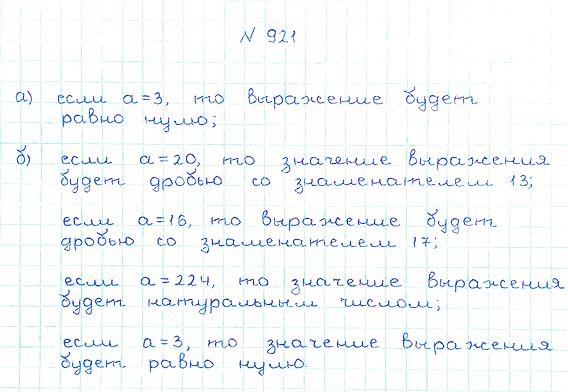 N 921
а) если а=3, то выражение будет
равно нулю;
б) если а=20, то значение выражения
будет дробью со знаменателем 13;
если а=16, то выражение будет
дробью со знаменателем 17;
если а=224, то значение выражения
будет натуральным числом;
если а=3, то значение выражения
будет равно нулю.